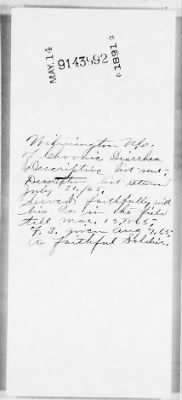 MAY. 14
9143592
1891
Wilmington N.C.
of Chronic Diarrhea
Descriptive list sent,
Descriptive list returned
July 31, 65,
Served faithfully with
his Co. in the field
till Mar. 15, 1865
F. S. given Aug 7, 65
A faithful Soldier.